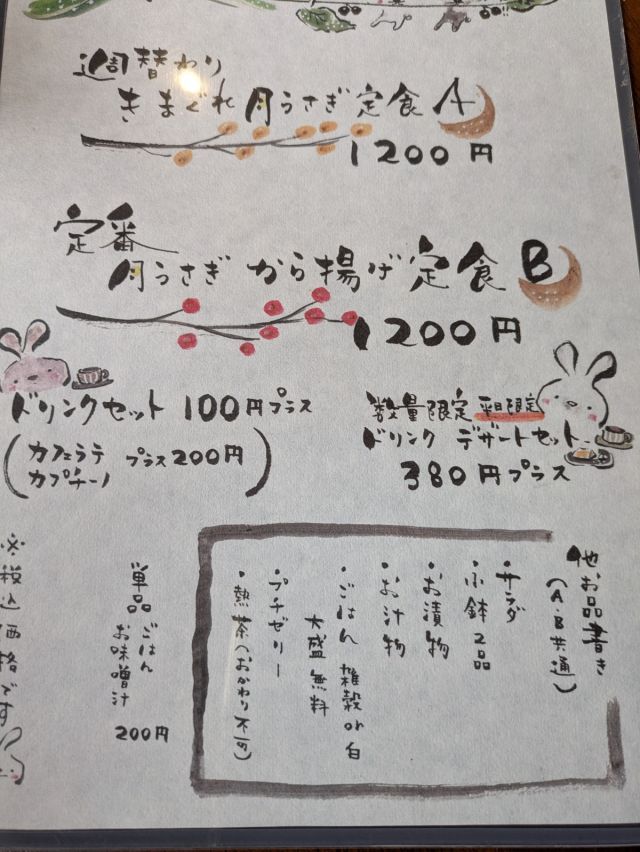 週替わり
きまぐれ月うさぎ定食A
1200円
定番
月うさぎ から揚げ定食B
1200円
ドリンクセット 100円プラス
(カフェラテ
カプチーノ プラス200円)
数量限定 平日限定
ドリンク デザートセット
380円プラス
他お品書き
(A・B共通)
・サラダ
・小鉢2品
・お漬物
・お汁物
・ごはん 雑穀or白
大盛無料
・プチゼリー
・熱茶(おかわり不可)
単品 ごはん
お味噌汁
200円
※税込価格です